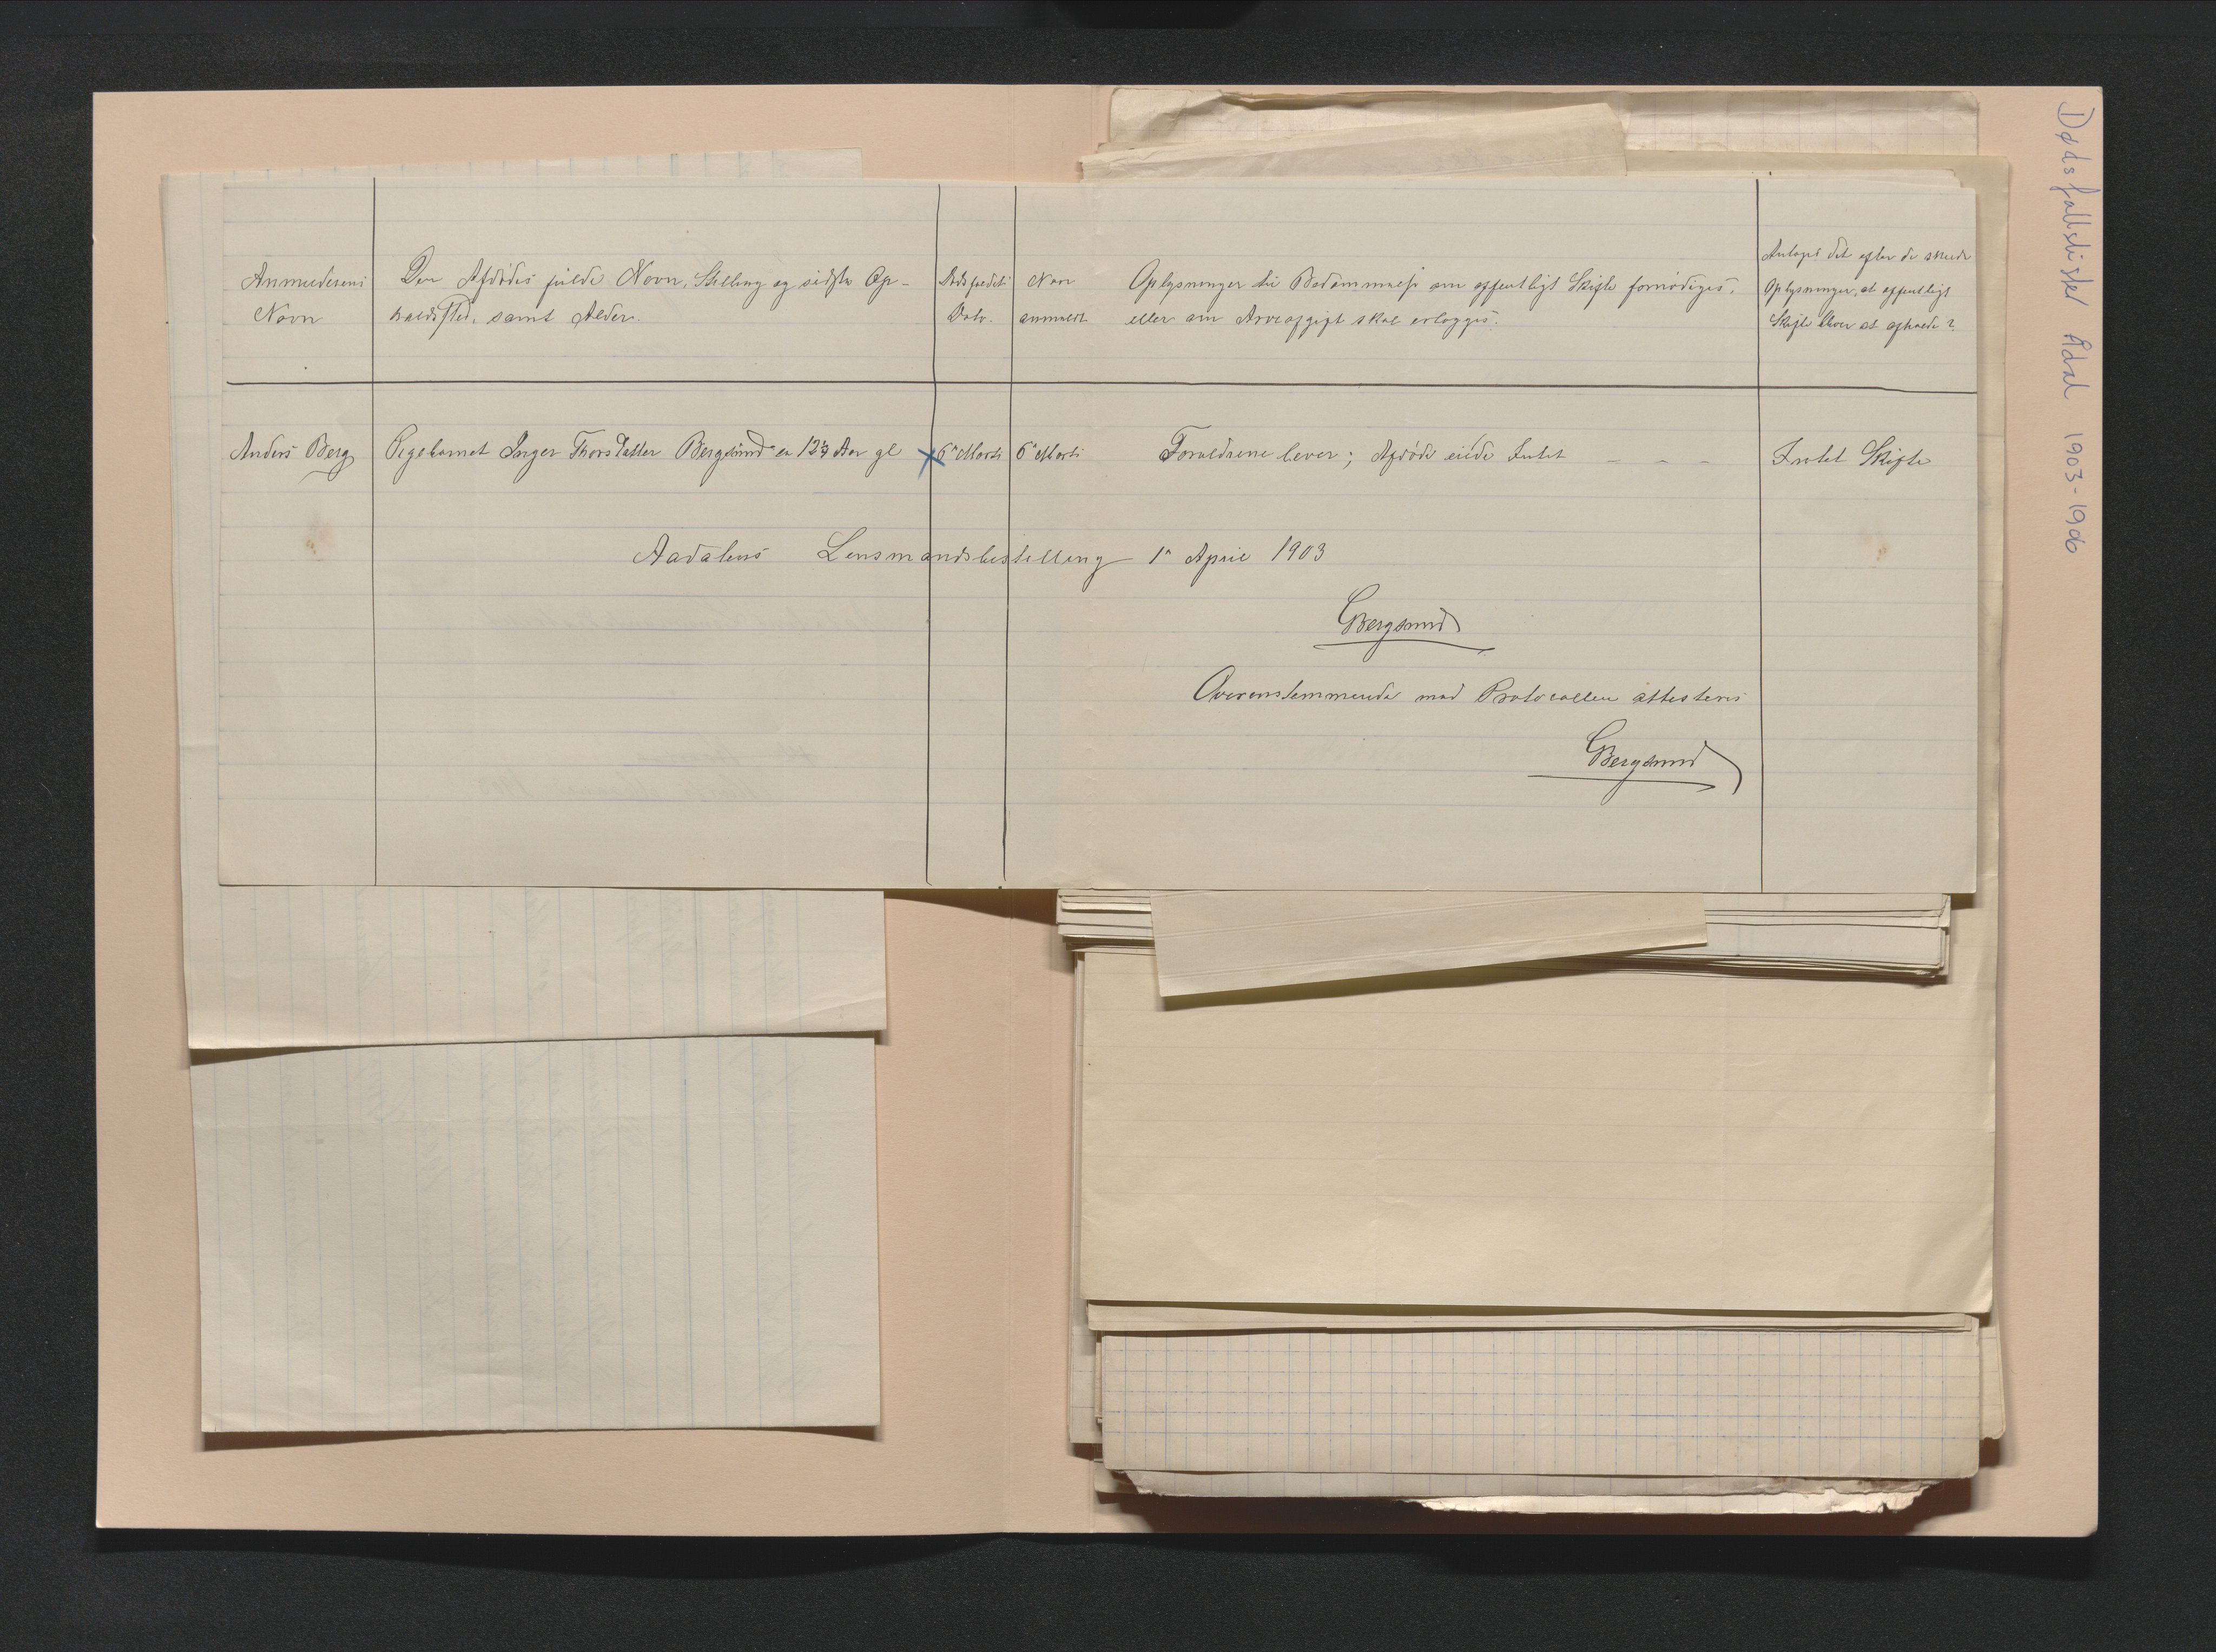 Dødsfallslister Ådal 1903-1906
Anmelderens
Navn
Den Afdødes fulde Navn, Stilling og sidste Op-
holdssted, samt Alder.
Dødsfaldets
Dato.
Naar
anmeldt
Oplysninger til Bedømmelse om offentligt Skifte fornødiges,
eller om Arveafgift skal erlægges.
Antages det efter de skeede
Oplysninger, at offentligt
Skifte bliver at afholde?
Anders Berg
Pigebarnet Inger Thorsdatter Bergsund ca 12½ Aar gl
6te Marts
6te Marts
Forældrene lever; Afdøde eiede Intet - - -
Intet Skifte
Aadalens Lensmandsbestilling 1te April 1903
GBergsund
Overensstemmende med Protocollen attesteres
GBergsund